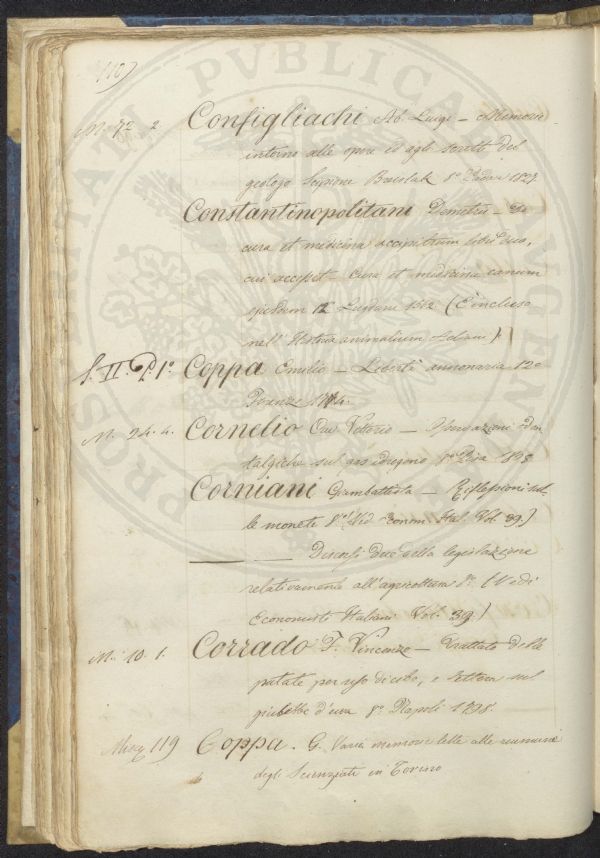 110)
M. 72 2 Configliachi Ab. Luigi — Memorie
intorno alle opere ed agli scritti del
geologo Scipione Breislak 8° Padova 1827.
Constantinopolitani Demetri — De
cura et medicina accipitrum libri duo,
cui accessit — Cura et medicina canum
ejusdem 12 Lugduni 1562 (È incluso
nell' Historia animalium Aeliani).
S. II. P. 1° Coppa Emilio — Libertà annonaria 12°
Firenze
M. 24. 4. Cornelio Cav Vittorio — Osservazioni
sul gas idrogeno 8° Pisa
Corniani Giambattista — Riflessioni sul
le monete 8° (Vid. Econom. Ital. Vol. 39.)
——— Discorsi due della legislazione
relativamente all'agricoltura 8°. (Vedi
Economisti Italiani Vol. 39)
M. 10. 1. Corrado F. Vincenzo — Trattato delle
patate per uso di cibo, e lettera sul
giulebbe d'uva 8° Napoli 1798.
Misc 119 Coppa. G. Varie memorie lette alle riunioni
degli Scienziati in Torino
PROSPERITATI PVBLICAE AVGENDAE